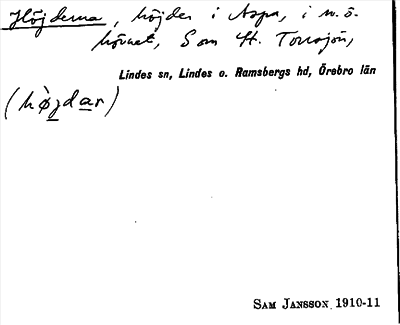 Höjderna, höjder i Aspa, i n.ö.
hörnet, S om H. Torrsjön,
Lindes sn, Lindes o. Ramsbergs hd, Örebro län
(hø̀jdar)
SAM JANSSON 1910-11